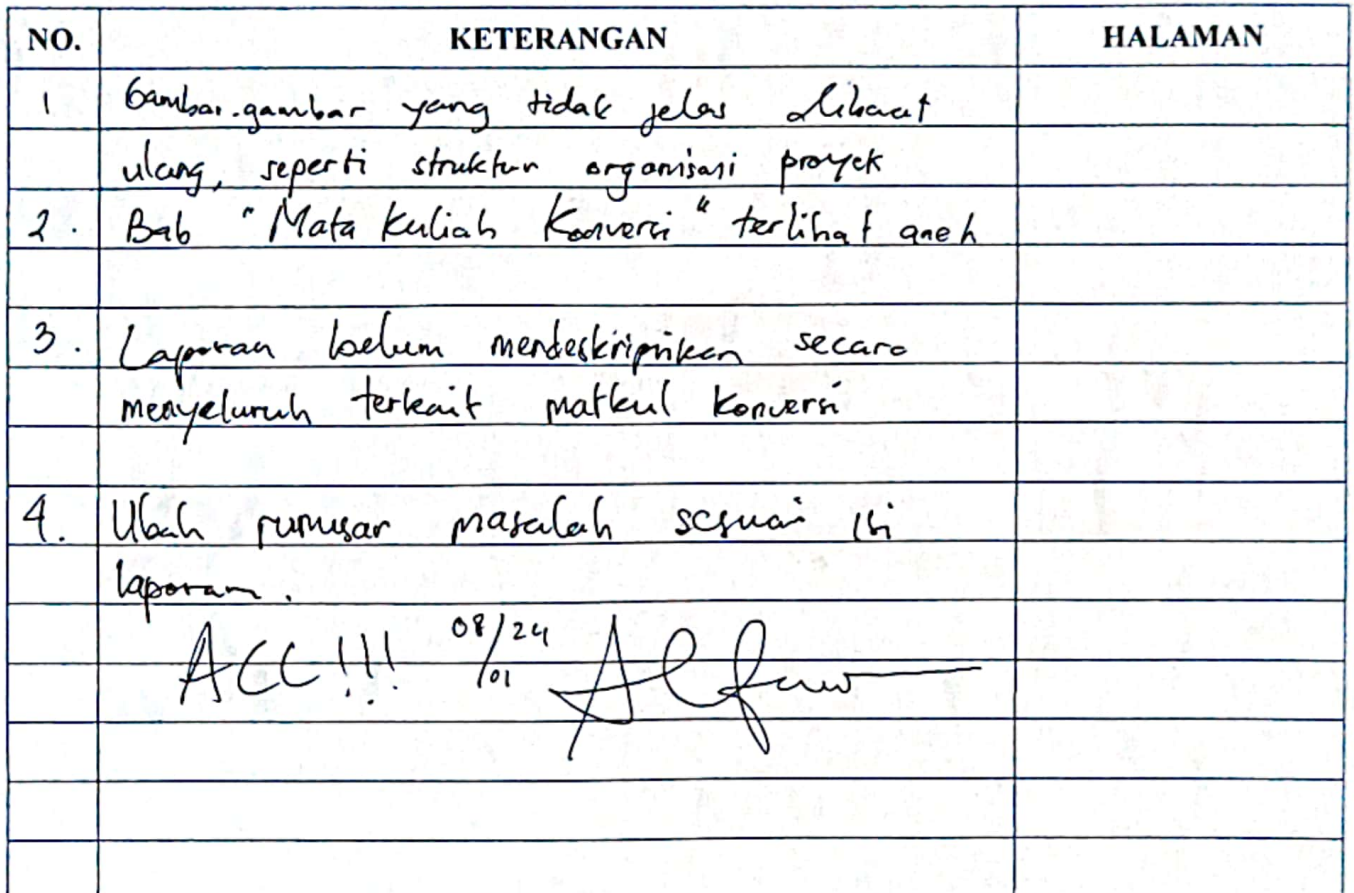 NO. KETERANGAN HALAMAN
1 Gambar-gambar yang tidak jelas dibuat
ulang, seperti struktur organisasi proyek
2. Bab "Mata Kuliah Konversi" terlihat aneh
3. Laporan belum mendeskripsikan secara
menyeluruh terkait matkul konversi
4. Ubah rumusan masalah sesuai isi
laporan.
ACC!!! 08/01/24